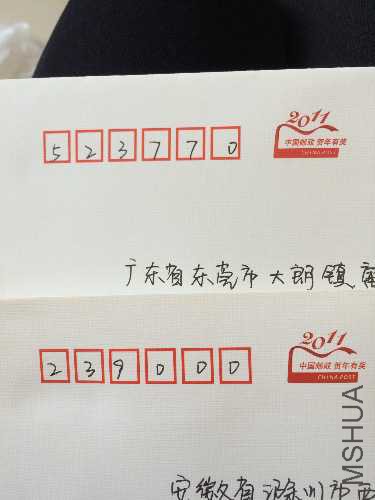 2011
中国邮政 贺年有奖
CHINA POST
523770
广东省东莞市大朗镇富
2011
中国邮政 贺年有奖
CHINA POST
239000
安徽省滁州市西
MSHUA